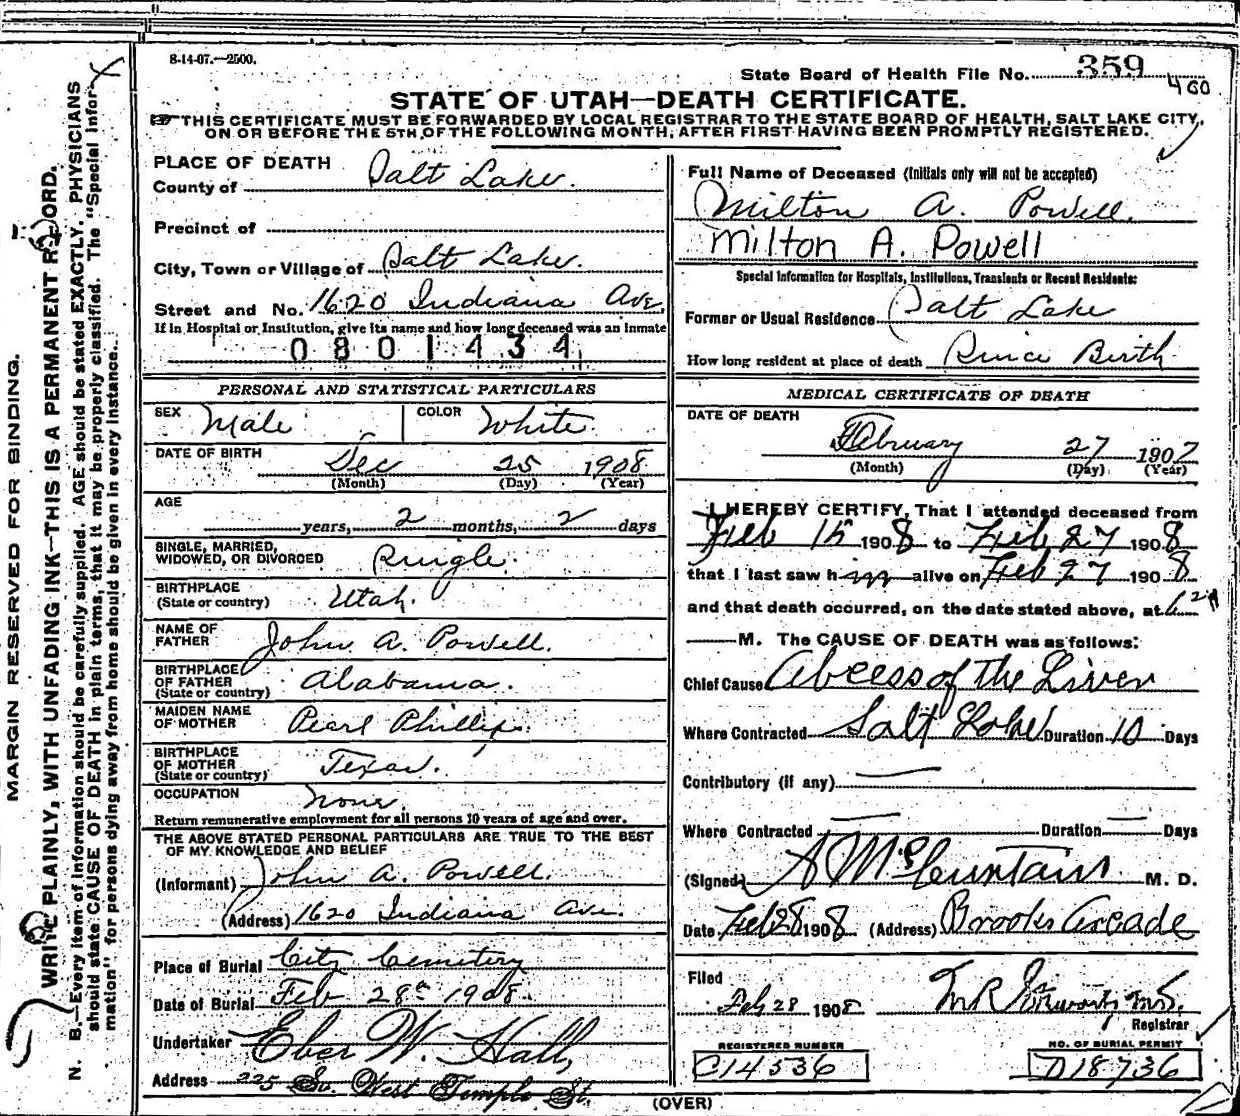 8-14-07.—2500.
State Board of Health File No. 359
400
STATE OF UTAH—DEATH CERTIFICATE.
THIS CERTIFICATE MUST BE FORWARDED BY LOCAL REGISTRAR TO THE STATE BOARD OF HEALTH, SALT LAKE CITY,
ON OR BEFORE THE 5TH OF THE FOLLOWING MONTH, AFTER FIRST HAVING BEEN PROMPTLY REGISTERED.
MARGIN RESERVED FOR BINDING.
WRITE PLAINLY, WITH UNFADING INK—THIS IS A PERMANENT RECORD.
N. B.—Every item of information should be carefully supplied. AGE should be stated EXACTLY. PHYSICIANS
should state CAUSE OF DEATH in plain terms, that it may be properly classified. The "Special Infor-
mation" for persons dying away from home should be given in every instance.
PLACE OF DEATH
County of Salt Lake.
Precinct of
City, Town or Village of Salt Lake.
Street and No. 1620 Indiana Ave,
If in Hospital or Institution, give its name and how long deceased was an inmate
0801434
PERSONAL AND STATISTICAL PARTICULARS
SEX Male COLOR White.
DATE OF BIRTH Dec 25 1908
(Month) (Day) (Year)
AGE
years, 2 months, 2 days
SINGLE, MARRIED,
WIDOWED, OR DIVORCED Single.
BIRTHPLACE
(State or country) Utah.
NAME OF
FATHER John A. Powell.
BIRTHPLACE
OF FATHER
(State or country) Alabama.
MAIDEN NAME
OF MOTHER Pearl Phillips.
BIRTHPLACE
OF MOTHER
(State or country) Texas.
OCCUPATION None.
Return remunerative employment for all persons 10 years of age and over.
THE ABOVE STATED PERSONAL PARTICULARS ARE TRUE TO THE BEST
OF MY KNOWLEDGE AND BELIEF
(Informant) John A. Powell.
(Address) 1620 Indiana Ave.
Place of Burial City Cemetery
Date of Burial Feb 28th 1908.
Undertaker Eber W. Hall,
Address 225 So. West Temple St.
Full Name of Deceased (Initials only will not be accepted)
Milton A. Powell.
Milton A. Powell
Special Information for Hospitals, Institutions, Transients or Recent Residents:
Former or Usual Residence Salt Lake
How long resident at place of death Since Birth
MEDICAL CERTIFICATE OF DEATH
DATE OF DEATH
February 27 1907
(Month) (Day) (Year)
I HEREBY CERTIFY, That I attended deceased from
Feb 15 1908 to Feb 27 1908
that I last saw him alive on Feb 27 1908
and that death occurred, on the date stated above, at
M. The CAUSE OF DEATH was as follows:
Chief Cause Abcess of the Liver
Where Contracted Salt Lake Duration 10 Days
Contributory (if any)
Where Contracted Duration Days
(Signed) M. D.
Date Feb 28 1908 (Address) Brooks Arcade
Filed
Feb 28 1908
Registrar
REGISTERED NUMBER
C14536
NO. OF BURIAL PERMIT
D18736
(OVER)